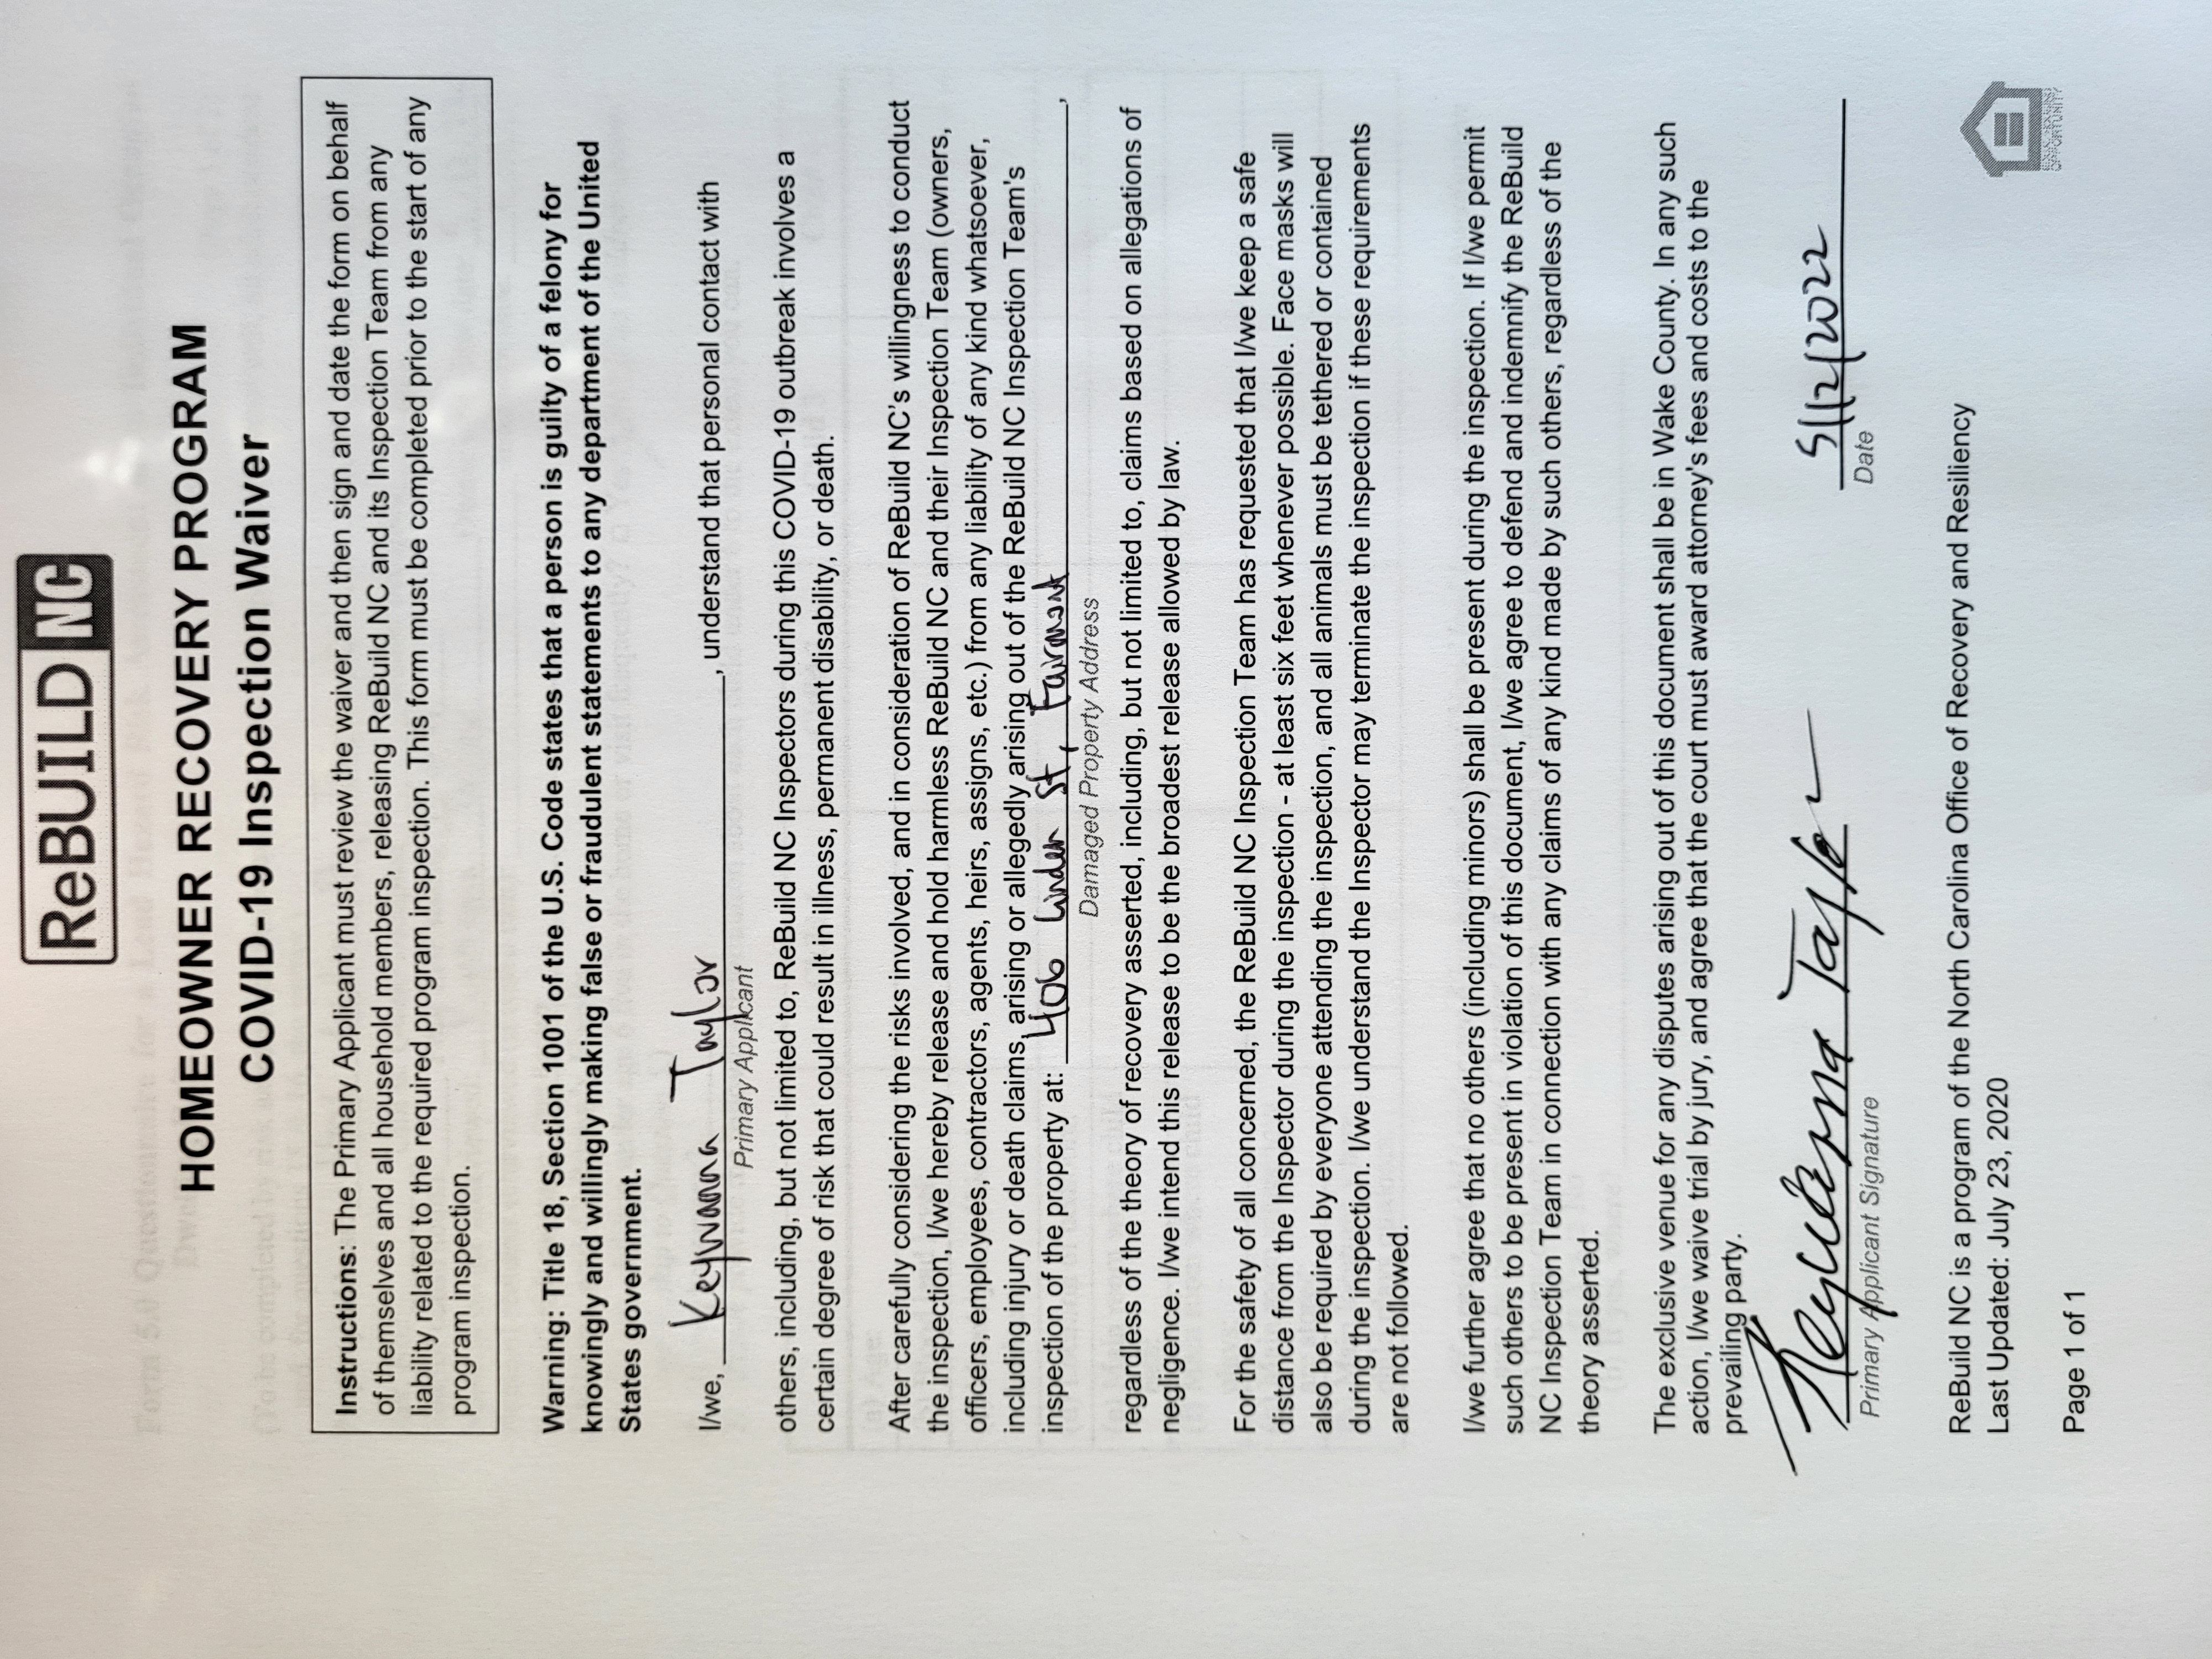 ReBUILD NC
HOMEOWNER RECOVERY PROGRAM
COVID-19 Inspection Waiver
Instructions: The Primary Applicant must review the waiver and then sign and date the form on behalf
of themselves and all household members, releasing ReBuild NC and its Inspection Team from any
liability related to the required program inspection. This form must be completed prior to the start of any
program inspection.
Warning: Title 18, Section 1001 of the U.S. Code states that a person is guilty of a felony for
knowingly and willingly making false or fraudulent statements to any department of the United
States government.
I/we, Keywanna Taylor, understand that personal contact with
Primary Applicant
others, including, but not limited to, ReBuild NC Inspectors during this COVID-19 outbreak involves a
certain degree of risk that could result in illness, permanent disability, or death.
After carefully considering the risks involved, and in consideration of ReBuild NC's willingness to conduct
the inspection, I/we hereby release and hold harmless ReBuild NC and their Inspection Team (owners,
officers, employees, contractors, agents, heirs, assigns, etc.) from any liability of any kind whatsoever,
including injury or death claims, arising or allegedly arising out of the ReBuild NC Inspection Team's
inspection of the property at: 406 St, Fairmont,
Damaged Property Address
regardless of the theory of recovery asserted, including, but not limited to, claims based on allegations of
negligence. I/we intend this release to be the broadest release allowed by law.
For the safety of all concerned, the ReBuild NC Inspection Team has requested that I/we keep a safe
distance from the Inspector during the inspection - at least six feet whenever possible. Face masks will
also be required by everyone attending the inspection, and all animals must be tethered or contained
during the inspection. I/we understand the Inspector may terminate the inspection if these requirements
are not followed.
I/we further agree that no others (including minors) shall be present during the inspection. If I/we permit
such others to be present in violation of this document, I/we agree to defend and indemnify the ReBuild
NC Inspection Team in connection with any claims of any kind made by such others, regardless of the
theory asserted.
The exclusive venue for any disputes arising out of this document shall be in Wake County. In any such
action, I/we waive trial by jury, and agree that the court must award attorney's fees and costs to the
prevailing party.
Keywanna Taylor 5/12/2022
Primary Applicant Signature Date
ReBuild NC is a program of the North Carolina Office of Recovery and Resiliency
Last Updated: July 23, 2020
EQUAL HOUSING
OPPORTUNITY
Page 1 of 1